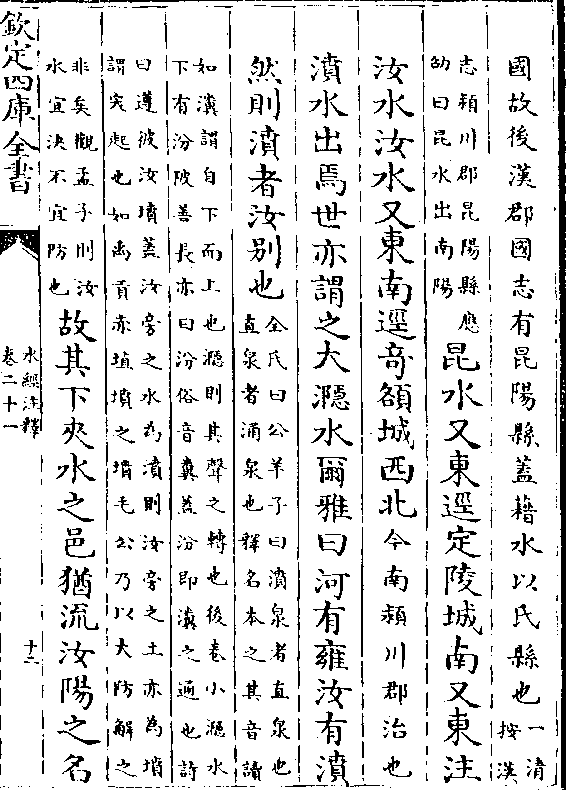 國故後漢郡國志有昆陽縣蓋藉水以氏縣也一清
按漢
志潁川郡昆陽縣應
劭曰昆水出南陽
昆水又東逕定陵城南又東注
汝水汝水又東南逕奇頟城西北今南潁川郡治也
濆水出焉世亦謂之大㶏水爾雅曰河有雍汝有濆
然則濆者汝别也
全氏曰公羊子曰濆泉者直泉也
直泉者涌泉也釋名本之其音讀
如瀵謂自下而上也㶏則其聲之轉也後卷小㶏水
下有汾陂善長亦曰汾俗音糞蓋汾即瀵之通也詩
曰遵彼汝墳蓋汝旁之水為濆則汝旁之土亦為墳
謂突起也如禹貢赤埴墳之墳毛公乃以大防解之
非矣觀孟子則汝
水宜決不宜防也
故其下夾水之邑猶流汝陽之名
欽定四庫全書
水經注釋
卷二十一
十二